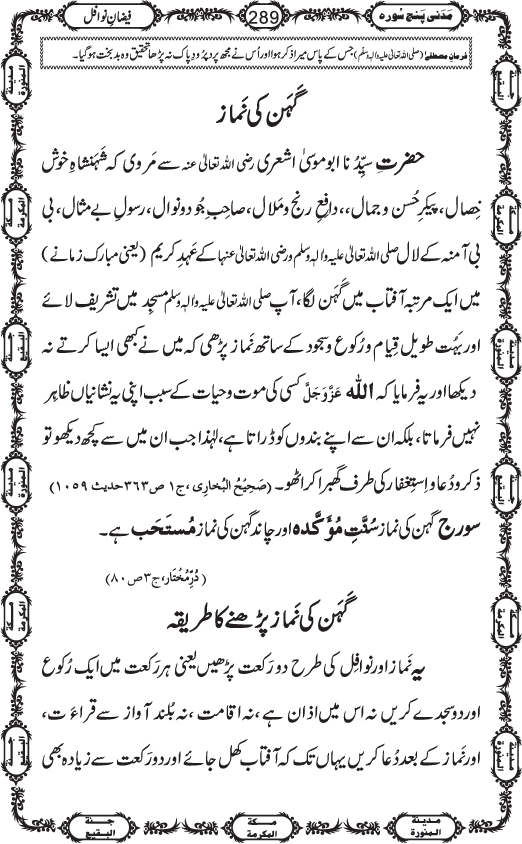 مَدَنی پَنج سُورہ
289
فیضانِ نوافل
فرمانِ مصطفٰی (صلی اللہ تعالیٰ علیہ والہ وسلم) جس کے پاس میرا ذکر ہوا اور اُس نے مجھ پر دُرودِ پاک نہ پڑھا تحقیق وہ بد بخت ہوگیا۔
گہَن کی نَماز
حضرتِ سیِّدُنا ابو موسیٰ اشعری رضی اللہ تعالیٰ عنہ سے مَروی کہ شَہَنشاہِ خوش
خِصال، پیکرِ حُسن و جمال،، دافِعِ رنج و مَلال، صاحبِ جُود و نوال، رسولِ بے مثال، بی
بی آمنہ کے لال صلی اللہ تعالیٰ علیہ والہٖ وسلم ورضی اللہ تعالیٰ عنہا کے عَہدِ کریم (یعنی مبارک زمانے)
میں ایک مرتبہ آفتاب میں گہَن لگا، آپ صلی اللہ تعالیٰ علیہ والہٖ وسلم مسجِد میں تشریف لائے
اور بَہُت طویل قِیام و رُکوع و سجود کے ساتھ نَماز پڑھی کہ میں نے کبھی ایسا کرتے نہ
دیکھا اور یہ فرمایا کہ اللہ عَزَّوَجَلَّ کسی کی موت و حیات کے سبب اپنی یہ نشانیاں ظاہر
نہیں فرماتا، بلکہ ان سے اپنے بندوں کو ڈراتا ہے، لہٰذا جب ان میں سے کچھ دیکھو تو
ذکر و دُعا و اِستِغفار کی طرف گھبرا کر اٹھو۔ (صَحِیحُ البُخاری ،ج۱ ص۳۶۳ حدیث ۱۰۵۹)
سورج گہن کی نماز سُنّتِ مُؤَکَّدہ اور چاند گہن کی نماز مُستَحَب ہے۔
(دُرِّمُختار، ج۳ ص۸۰)
گہَن کی نَماز پڑھنے کا طریقہ
یہ نَماز اور نوافِل کی طرح دو رَکعت پڑھیں یعنی ہر رَکعت میں ایک رُکوع
اور دو سجدے کریں نہ اس میں اذان ہے ،نہ اقامت ، نہ بُلند آواز سے قراءَت،
اور نَماز کے بعد دُعا کریں یہاں تک کہ آفتاب کُھل جائے اور دو رَکعت سے زیادہ بھی
مدینۃ المنورۃ
مکۃ المکرمۃ
جنۃ البقیع
مدینۃ المنورۃ
مکۃ المکرمۃ
جنۃ البقیع
جنۃ البقیع
مکۃ المکرمۃ
مدینۃ المنورۃ
جنۃ البقیع
مکۃ المکرمۃ
مدینۃ المنورۃ
مدینۃ المنورۃ
مکۃ المکرمۃ
جنۃ البقیع